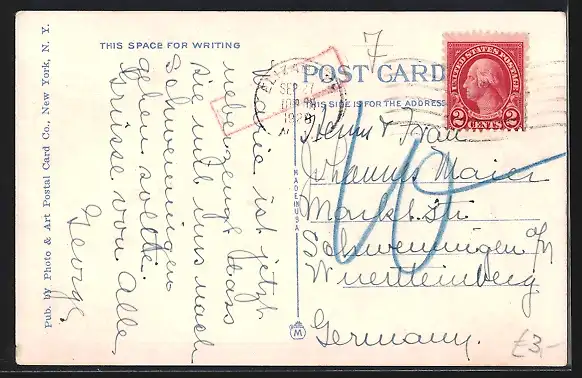 THIS SPACE FOR WRITING
Marie ist jetzt
ueberzeugt dass
sie mit uns nach
Schwenningen
gehen sollte.
Grüsse von Alle,
George.
Pub. by Photo & Art Postal Card Co., New York, N. Y.
MADE IN USA
M
7
SEP 27
1928
POST CARD
THIS SIDE IS FOR THE ADDRESS
UNITED STATES POSTAGE
2 CENTS 2
Herrn & Frau
Johannes Maier
Markt. Str.
Schwenningen a/N
Wuerttemberg
Germany.
10
£3,-